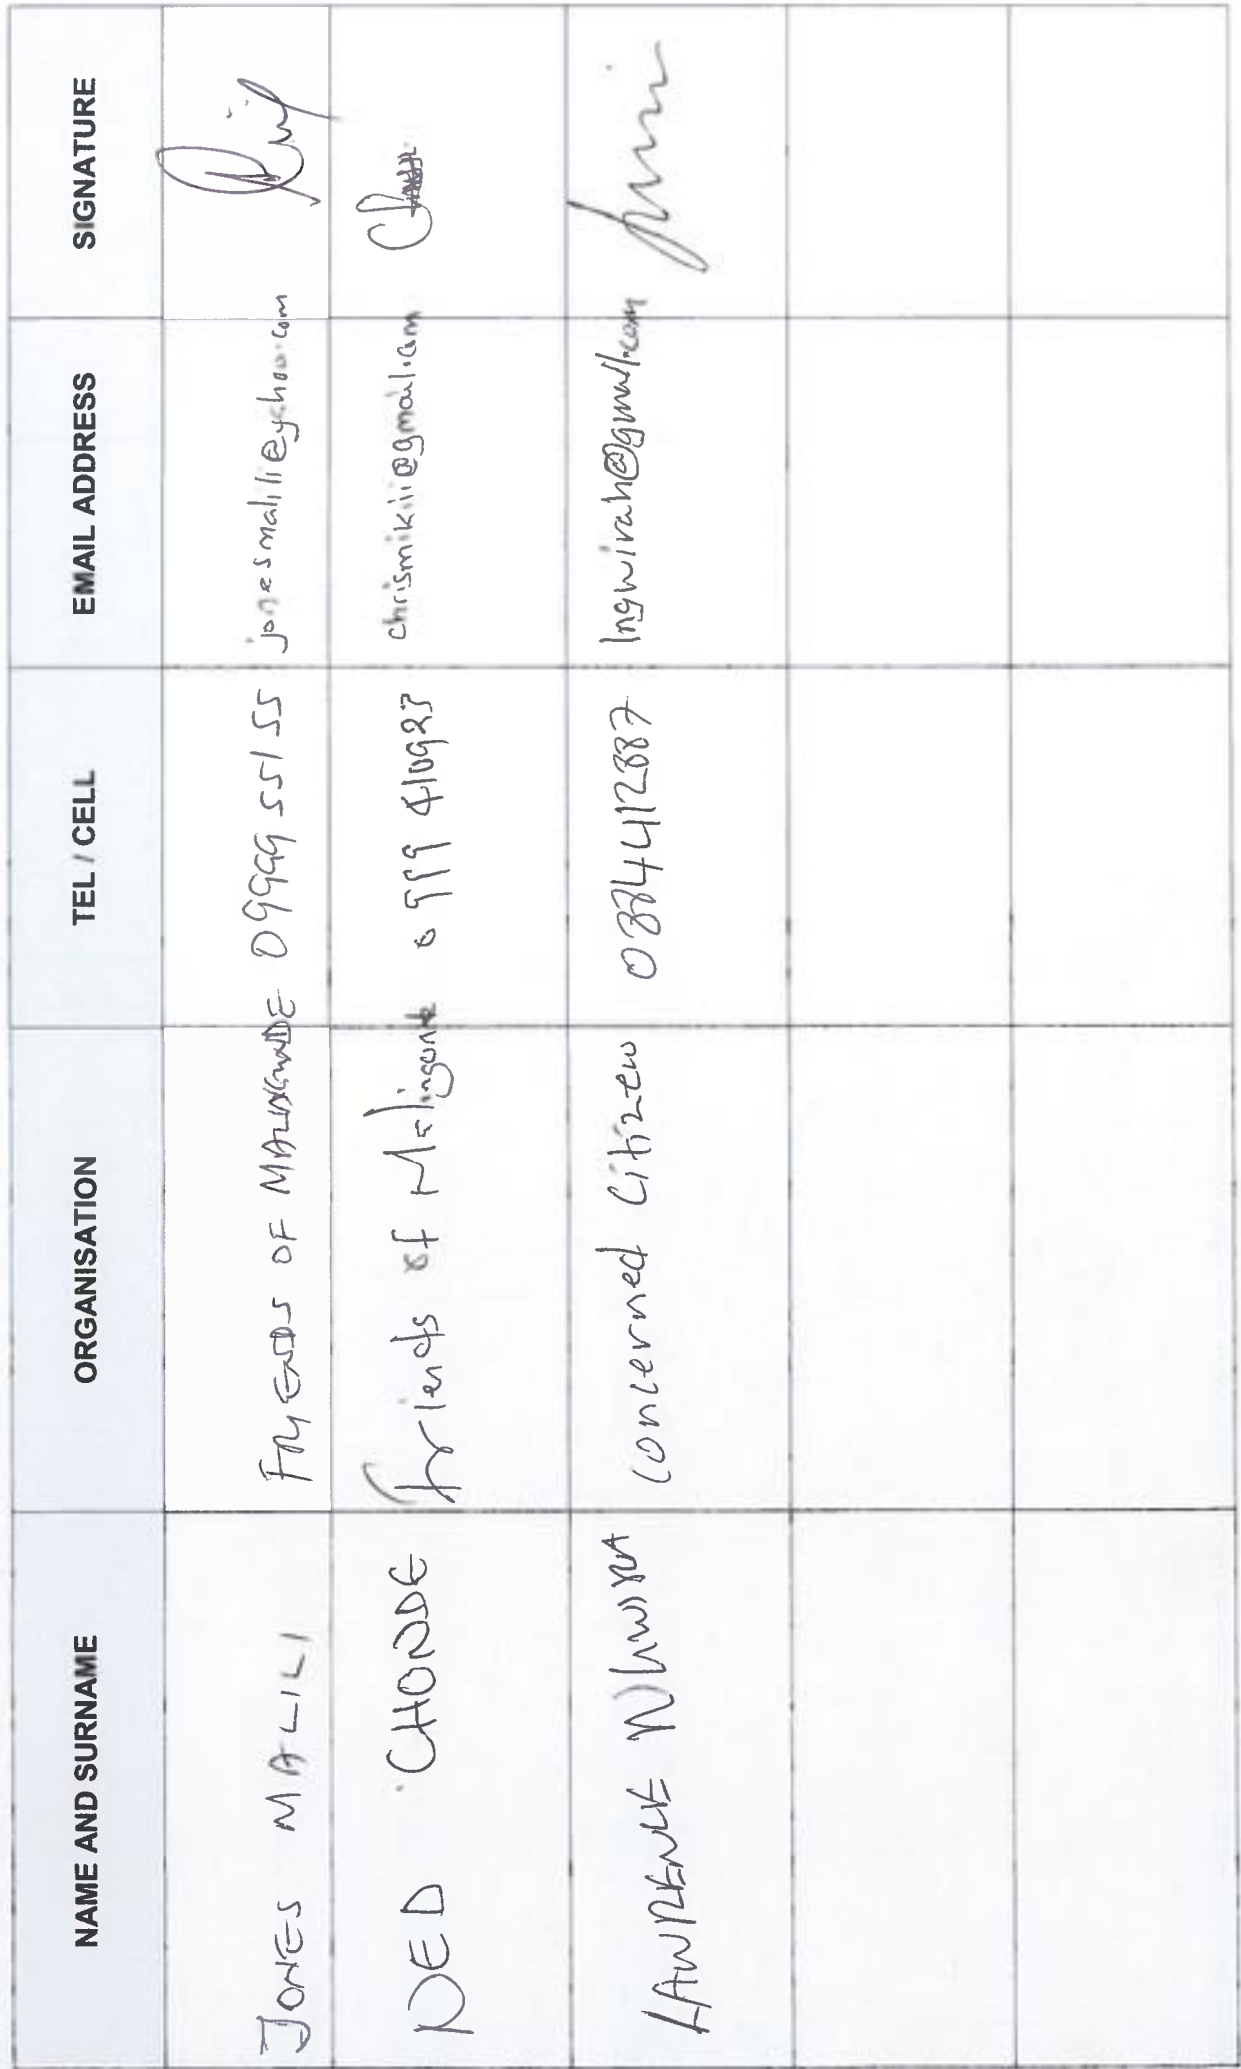 NAME AND SURNAME ORGANISATION TEL / CELL EMAIL ADDRESS SIGNATURE
JONES MALILI FRIENDS OF MALINGUNDE 0999955155 jonesmalili@yahoo.com
NED CHONDE friends of Malingunde 0999410923 chrismikii@gmail.com
LAWRENCE concerned Citizen lngwirah@gmail.com